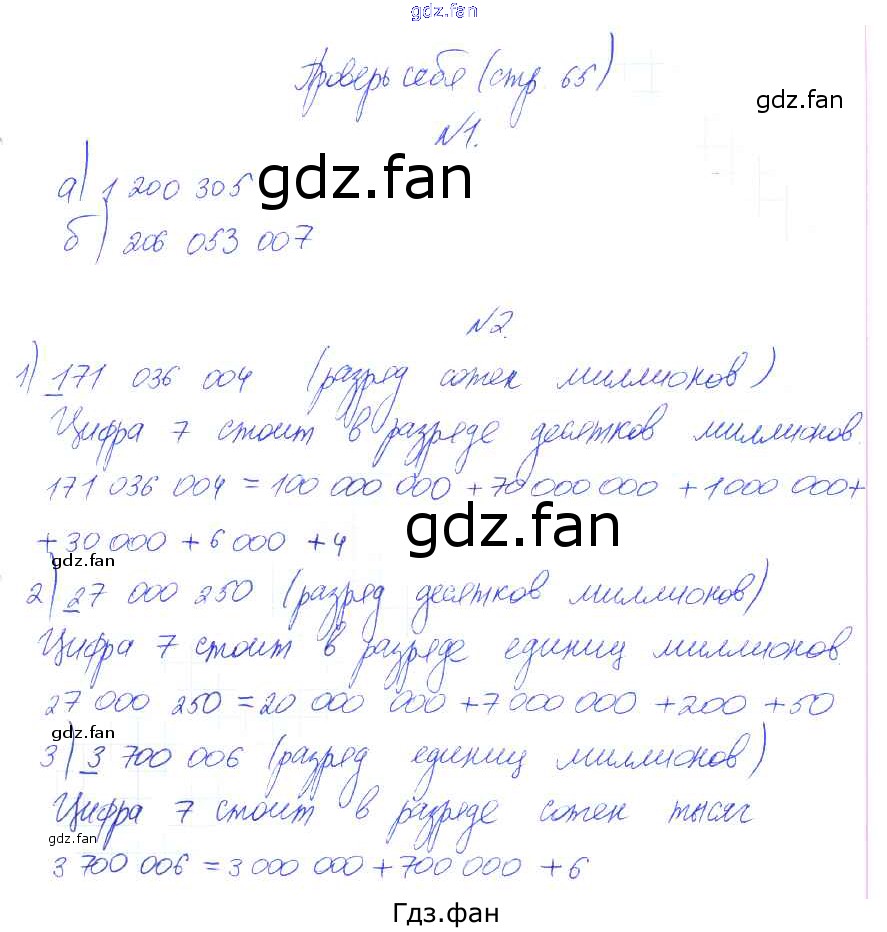 gdz.fan
Проверь себя (стр. 65)
gdz.fan
№1.
а) 1 200 305 gdz.fan
б) 206 053 007
№2.
1) 171 036 004 (разряд сотен миллионов)
Цифра 7 стоит в разряде десятков миллионов.
171 036 004 = 100 000 000 + 70 000 000 + 1 000 000 +
+ 30 000 + 6 000 + 4
gdz.fan
gdz.fan
2) 27 000 250 (разряд десятков миллионов)
Цифра 7 стоит в разряде единиц миллионов
27 000 250 = 20 000 000 + 7 000 000 + 200 + 50
gdz.fan
3) 3 700 006 (разряд единиц миллионов)
Цифра 7 стоит в разряде сотен тысяч
gdz.fan
3 700 006 = 3 000 000 + 700 000 + 6
Гдз.фан